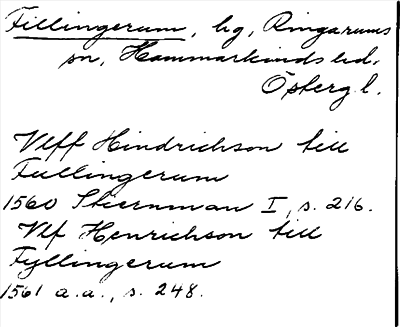 Fillingerum, hg, Ringarums
sn, Hammarkinds hd.
Östergl.
Vlff Hindrichson till
Fullingerum
1560 Stiernman I, s. 216.
Vlf Henrichson till
Fyllingerum
1561 a.a., s. 248.